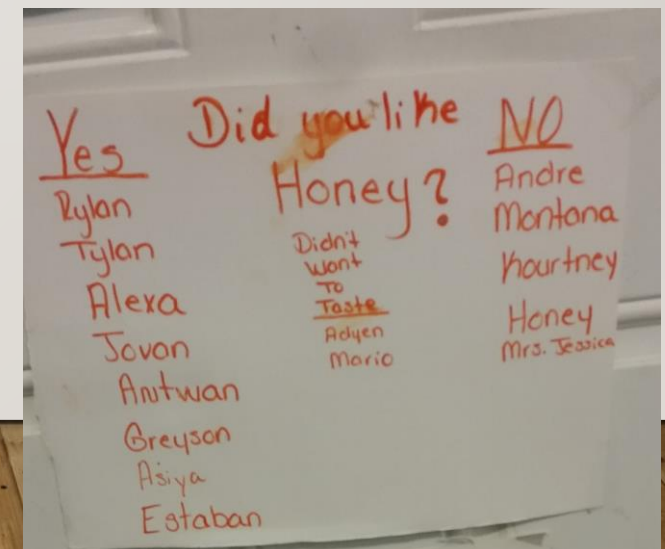 Did you like
Honey?
Yes
Rylan
Tylan
Alexa
Jovan
Antwan
Greyson
Asiya
Estaban
Didn't
Want
To
Taste
Adyen
Mario
NO
Andre
Montana
Kourtney
Honey
Mrs. Jessica